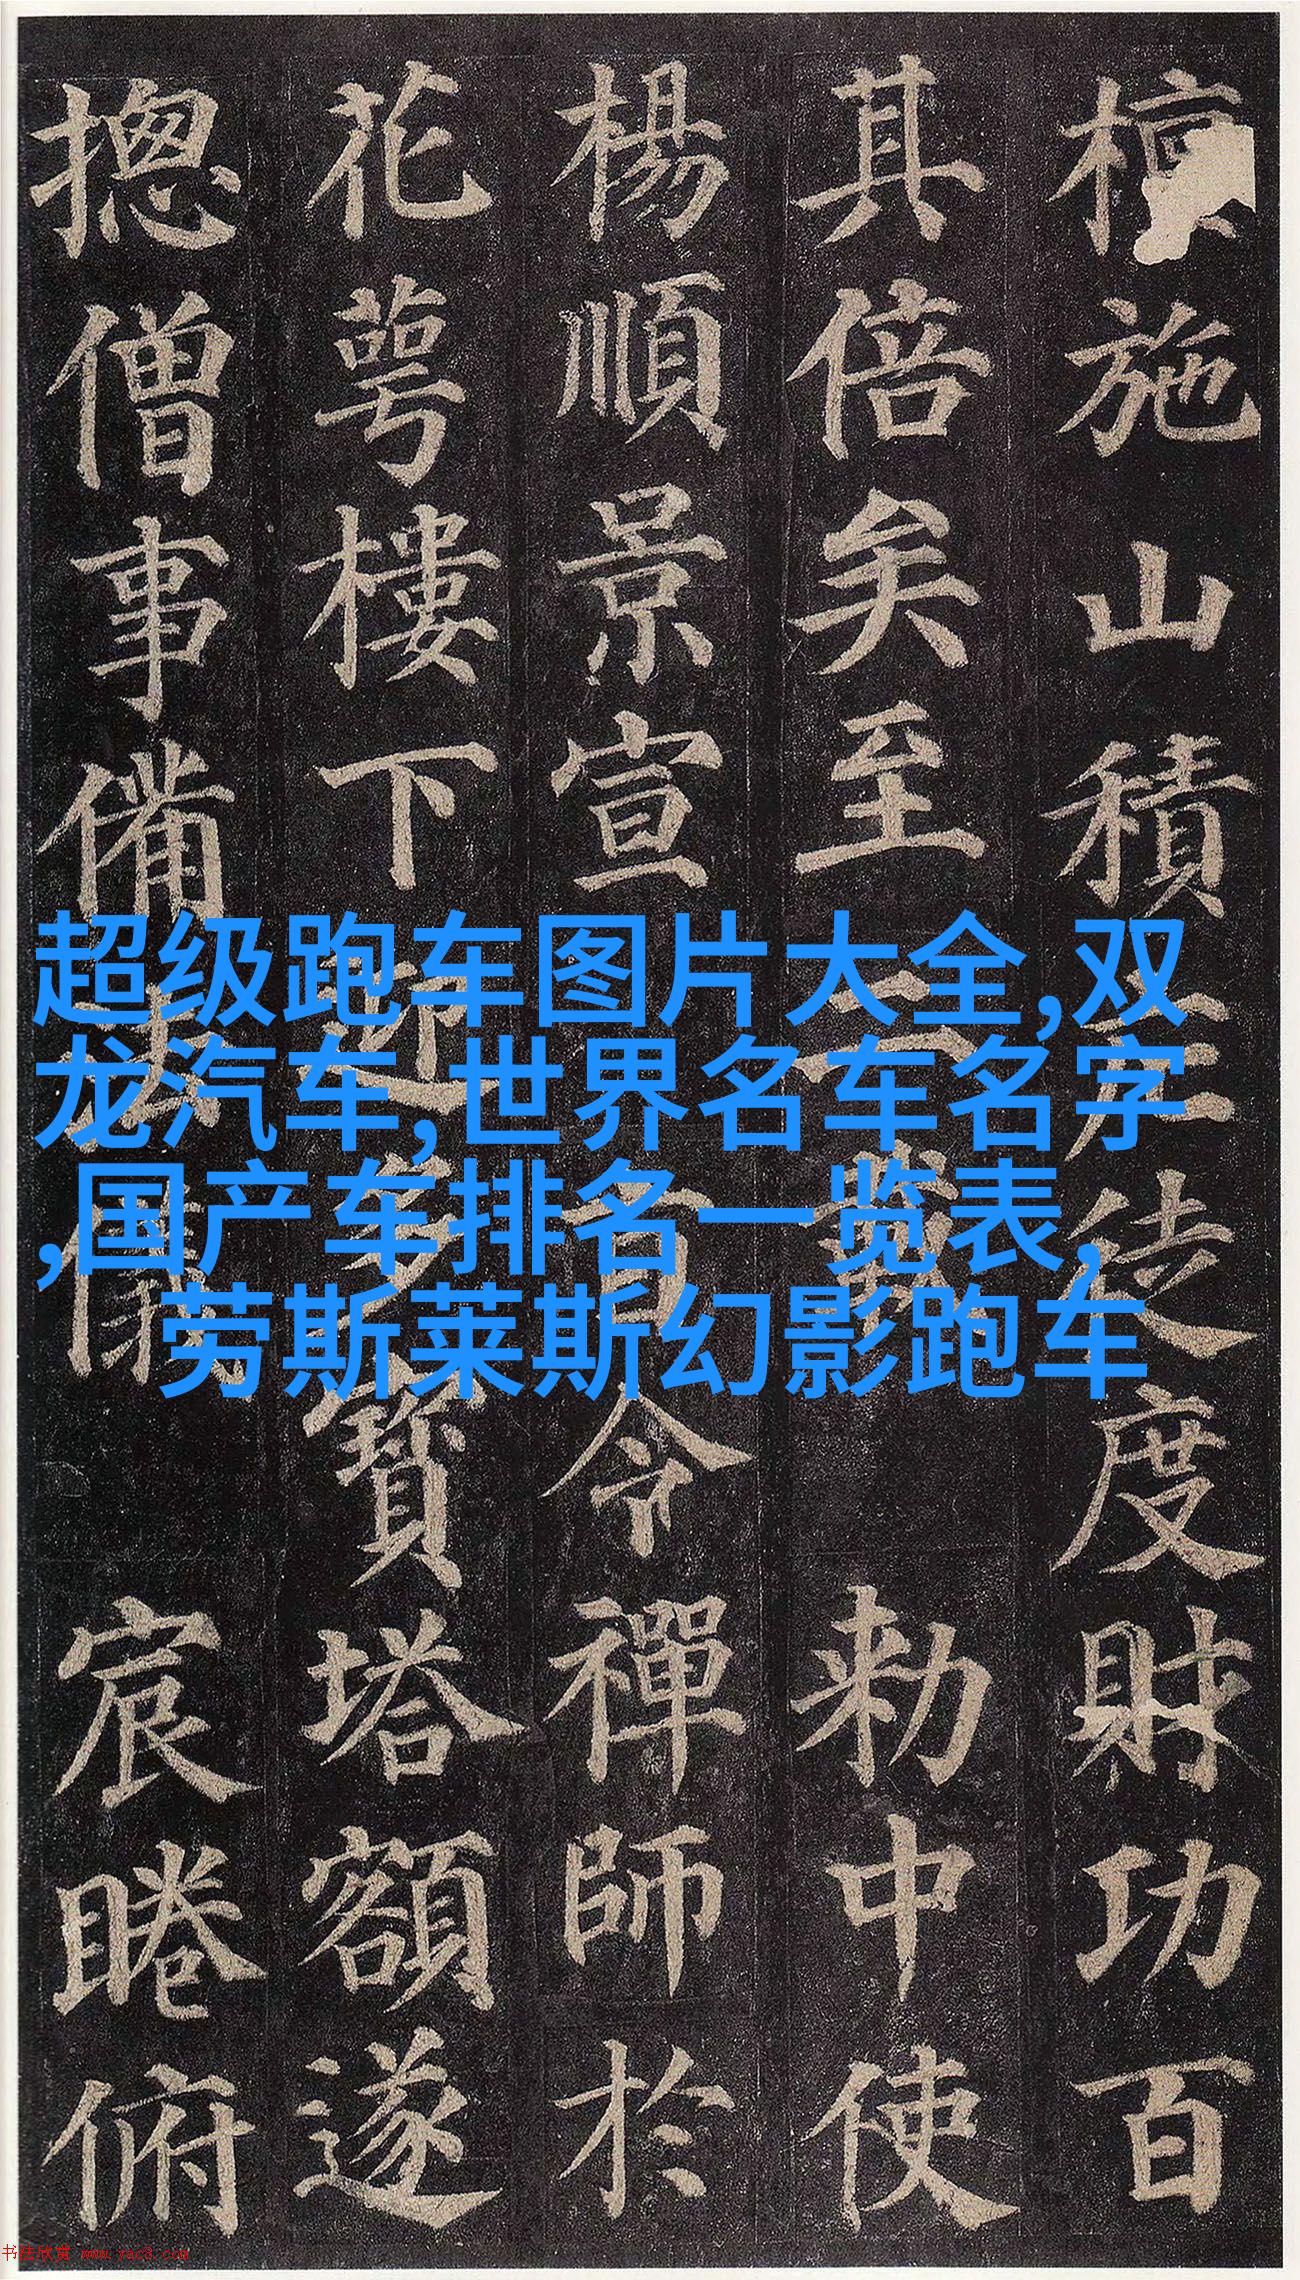 施山積徒度財功百
其倍矣至二載勑中使
楊順景宣旨令禪師於
花萼樓下迎多寶塔額遂
摠僧事備法儀宸睠俯
超级跑车图片大全,双
龙汽车,世界名车名字
,国产车排名一览表,
劳斯莱斯幻影跑车
书法欣赏 www.yac3.com